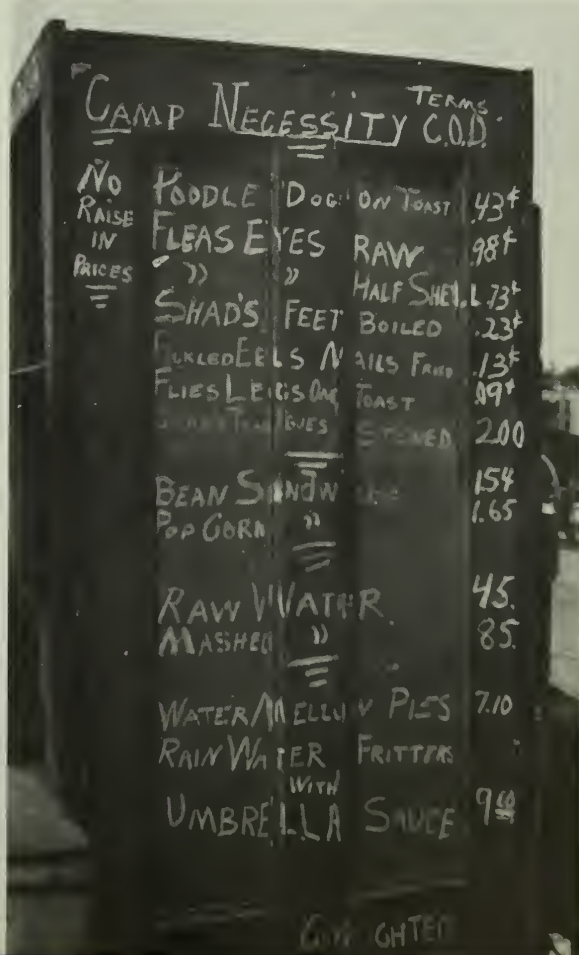 CAMP NECESSITY TERMS C.O.D.
NO RAISE IN PRICES
POODLE DOG ON TOAST .43¢
FLEAS EYES RAW .98¢
" " HALF SHELL .73¢
SHAD'S FEET BOILED .23¢
PICKLED EELS NAILS FRIED .13¢
FLIES LEGS ON TOAST .09¢
STEWED 2.00
BEAN SANDWICHES 1.54
POP CORN " 1.65
RAW WATER 45.
MASHED " 85.
WATER MELLON PIES 7.10
RAIN WATER FRITTERS
WITH
UMBRELLA SAUCE 9.60